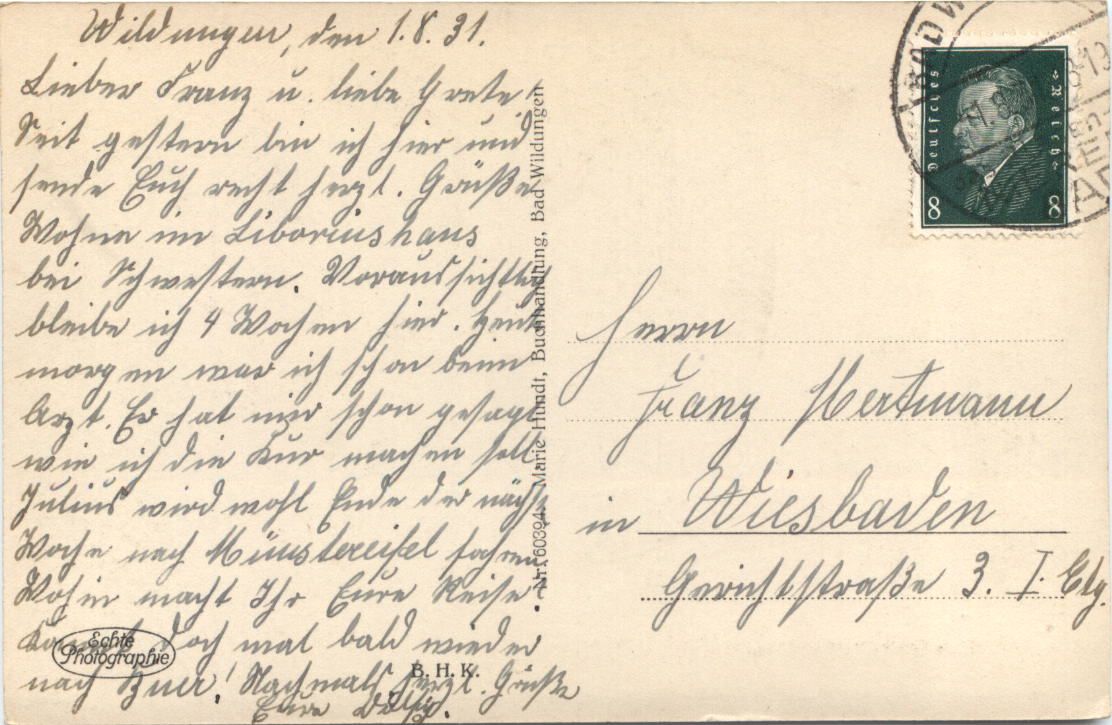 Wildungen, den 1.8.31.
Lieber Franz u. liebe Grete!
Seit gestern bin ich hier und
sende Euch recht herzl. Grüße
Wohne im Liboriushaus
bei Schwestern. Voraussichtlich
bleibe ich 4 Wochen hier. Heute
morgen war ich schon beim
Arzt. Er hat mir schon gesagt
wie ich die Kur machen soll.
Julius wird wohl Ende der nächst
Woche nach Münstereifel fahren
Wohin macht Ihr Eure Reise.
Kommt doch mal bald wieder
nach Buer! Nachmals herzl. Grüße
Eure
Echte
Photographie
B. H. K.
Nr. 60394. Marie Hundt, Buchhandlung, Bad Wildungen
Deutsches Reich
8 8
Herrn
Franz Hertmann
in Wiesbaden
Gerichtstraße 3. I. Etg.